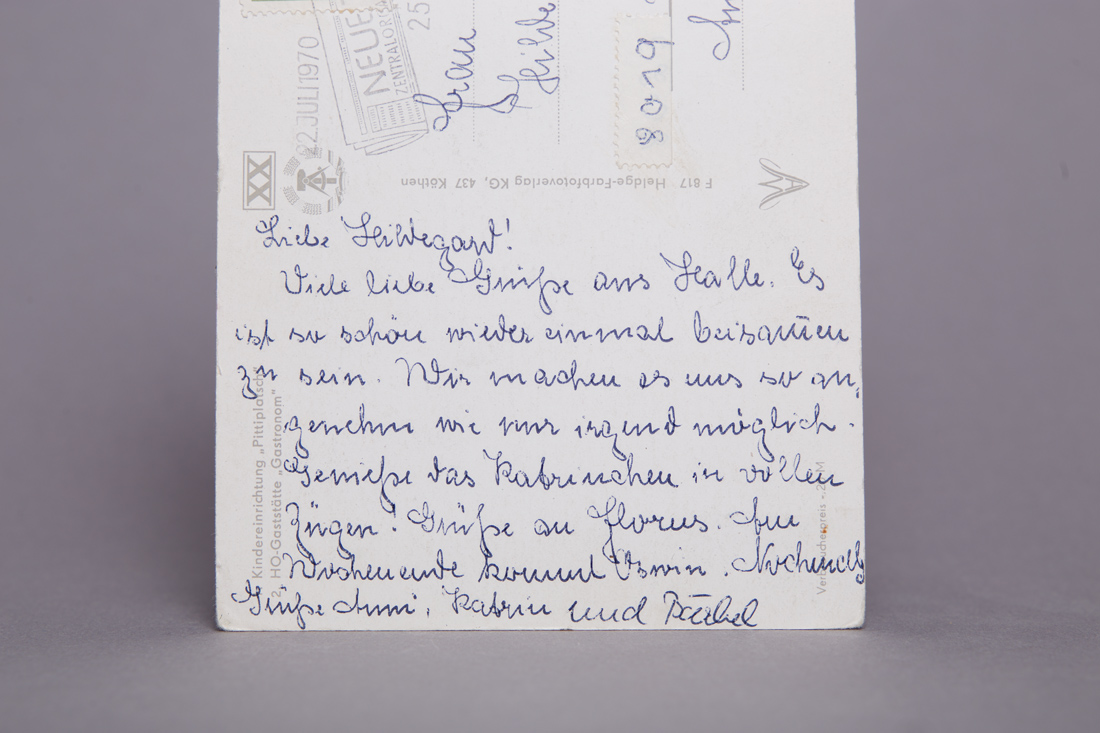 22.JULI 1970
NEUE
ZENTRALOR
25
XX
Frau
Hilde
8019
F 817 Heldge-Farbfotoverlag KG, 437 Köthen
Liebe Hildegard!
Viele liebe Grüße aus Halle. Es
ist so schön wieder einmal beisam̄en
zu sein. Wir machen es uns so an-
genehm wie nur irgend möglich.
Genieße das Katrinchen in vollen
Zügen! Grüße an Florus. Am
Wochenende kommt Oswin. Nochmals
Grüße Anni, Katrin und Bärbel
Kindereinrichtung „Pittiplatsch“
2. HO-Gaststätte „Gastronom“
Verbraucherpreis -.20 M